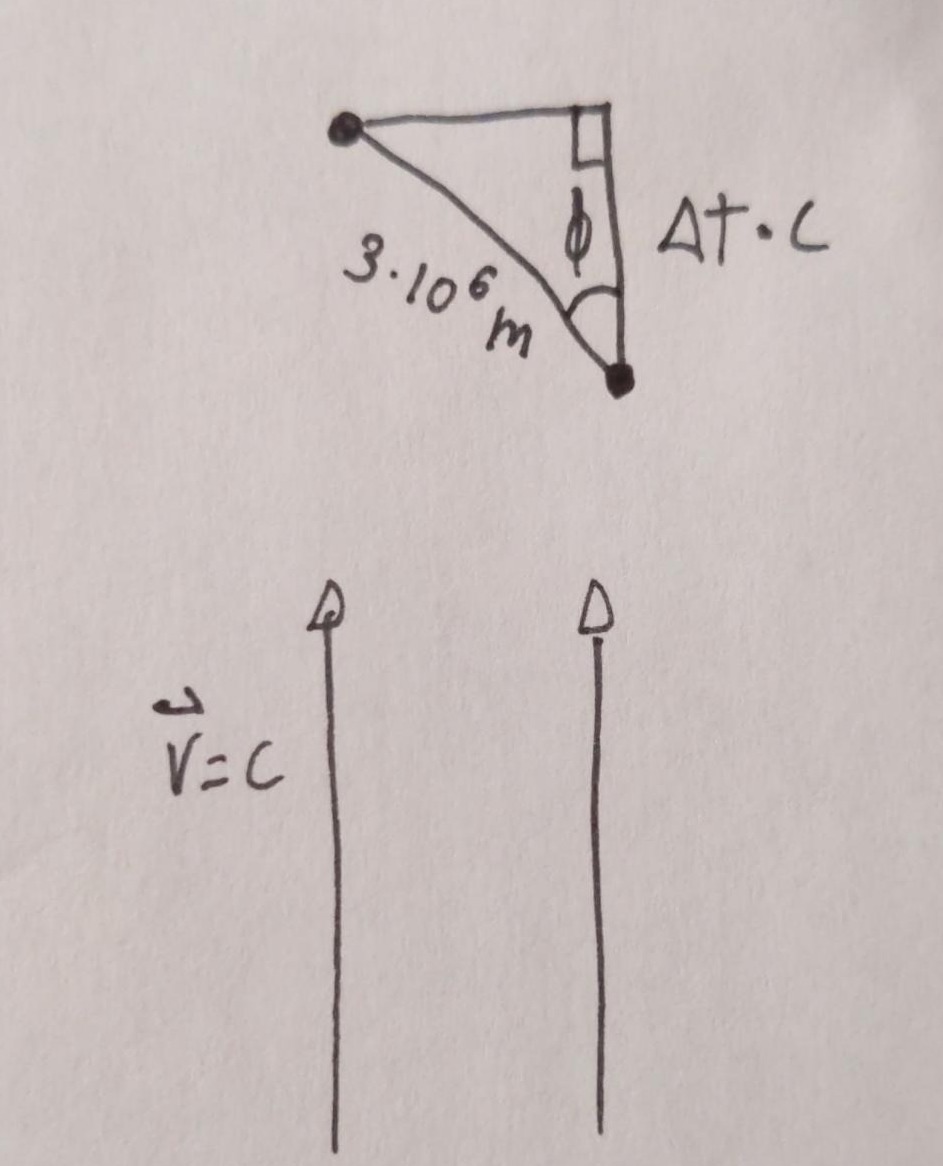 ϕ
Δt·c
3·10⁶ m
v⃗=c